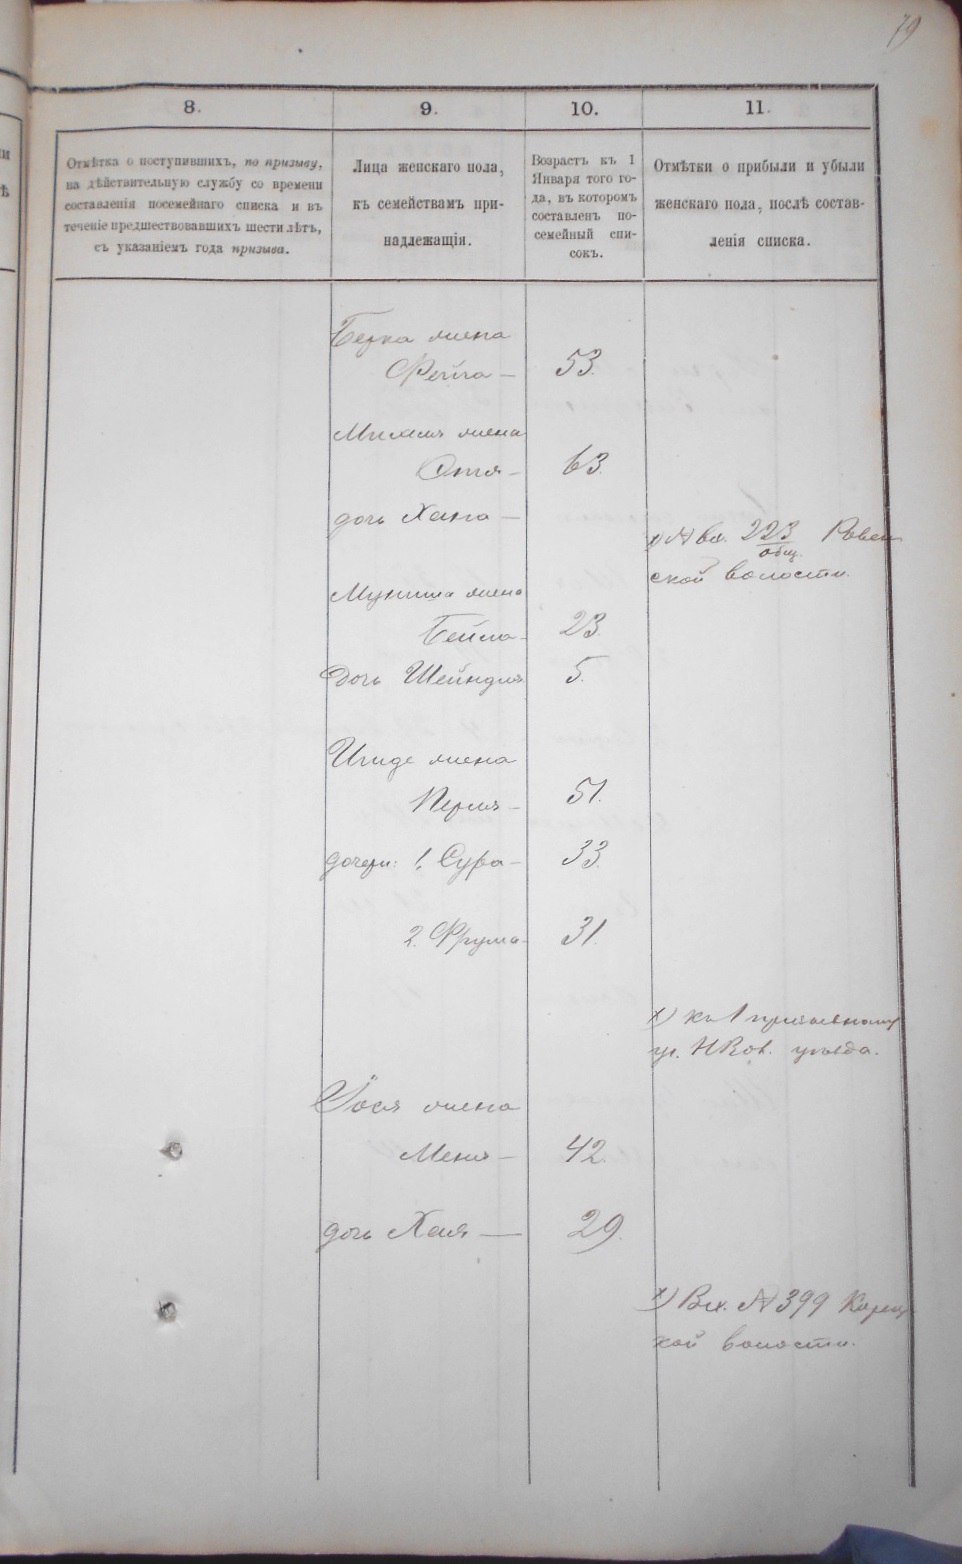 79
8.
9.
10.
11.
Отмѣтка о поступившихъ, по призыву,
на дѣйствительную службу со времени
составленія посемейнаго списка и въ
теченіе предшествовавшихъ шести лѣтъ,
съ указаніемъ года призыва.
Лица женскаго пола,
къ семействамъ при-
надлежащія.
Возрастъ къ 1
Января того го-
да, въ которомъ
составленъ по-
семейный спи-
сокъ.
Отмѣтки о прибыли и убыли
женскаго пола, послѣ состав-
ленія списка.
Берка жена
Фейга — 53.
жена
63.
дочь Хана —
х) № 223 Ровен
общ.
ской волости.
жена
Бейла - 23.
Дочь Шейндля 5.
жена
Перля - 51.
дочери: 1. Сура - 33.
2. Фрума - 31.
х) къ 1 призывному
уч. уѣзда.
Іося жена
Меня - 42.
дочь Хая — 29.
х) № 399 Корец
кой волости.